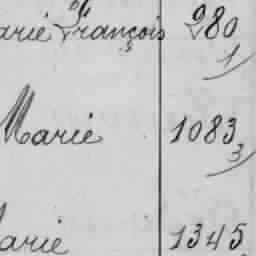 arie François 980
1
Marie 1083
3
arie 1345